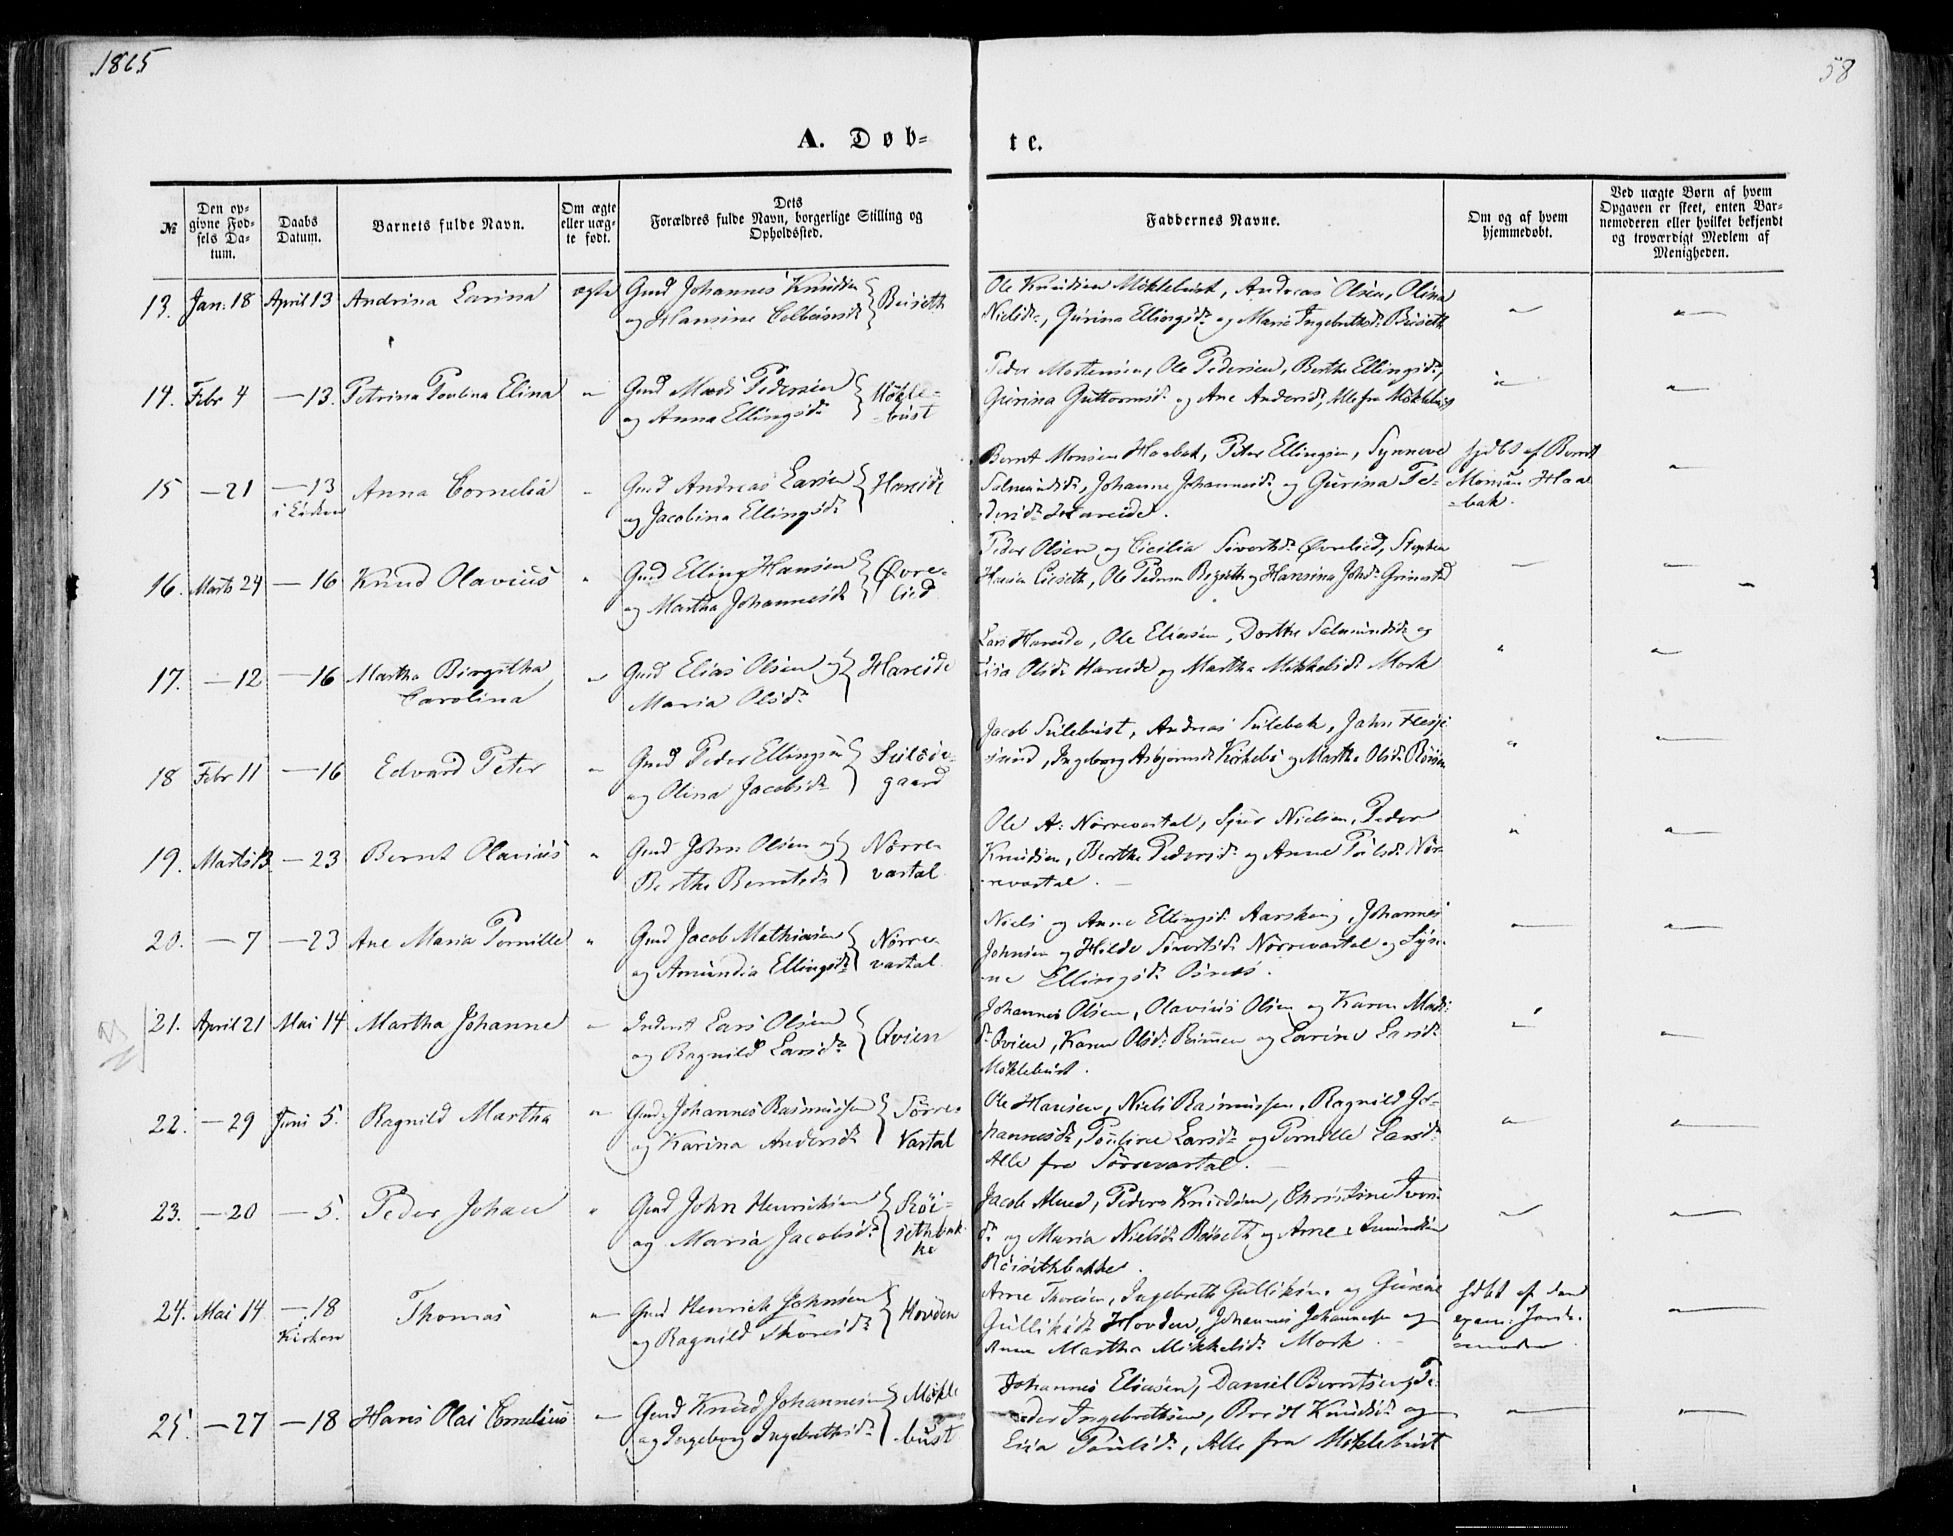 1865
58
A. Døb-
te.
№
Den op-
givne Fød-
sels Da-
tum.
Daabs
Datum.
Barnets fulde Navn.
Om ægte
eller uæg-
te født.
Dets
Forældres fulde Navn, borgerlige Stilling og
Opholdssted.
Faddernes Navne.
Om og af hvem
hjemmedøbt.
Ved uægte Børn af hvem
Opgaven er skeet, enten Bar-
nemoderen eller hvilket bekjendt
og troværdigt Medlem af
Menigheden.
13. Jan: 18 April 13 Andrina Larina ægte Gmd Johannes Knudsen
og Hansine Colbeinsd. Beiseth
Ole Knudsen Möklebust, Andreas Olsen, Olina
Nielsd., Gurina Ellingsd. og Marie Ingebrethsd. Beiseth
14. Febr 4 — 13. Petrina Paulina Elina " Gmd Mads Pedersen
og Anna Ellingsd. Mökle-
-bust
Peder Mortensen, Ole Pedersen, Berthe Ellingsd.,
Gurina Guttormsd. og Ane Andersd., Alle fra Möklebust
15 — 21 — 13 Anna Cornelia " Gmd Andreas Larsen
i Kirken og Jacobina Ellingsd. Hareide
Bernt Monsen Haabak, Peter Ellingsen, Synneve
Salmundsd., Johanne Johannesd. og Gurina Pe-
dersd. Hareide.
hjdbt af Bernt
Monsen Haa-
-bak.
16. Marts 24 — 16 Knud Olavius " Gmd Elling Hansen
og Martha Johannesd. Øvre-
lied
Peder Olsen og Cicilia Sivertsd. Øvrelied, Stephen
Hansen Lieseth, Ole Pedersen Bigseth og Hansina Johsd. Grimstad
17. — 12 — 16 Martha Birgitha
Carolina " Gmd Elias Olsen og
Maria Olsd. Hareide
Lars Hareide, Ole Eliasen, Dorthe Salmundsd. og
Lisa Olsd. Hareide og Martha Mikkelsd. Mork
18 Febr 11 — 16 Edvard Peter " Gmd Peder Ellingsen
og Olina Jacobsd. gaard
Jacob Sulebust, Andreas Sulebak, John Flesje
sund, Ingeborg Asbjørnsd. Kirkebö og Martha Olsd. Röisen
19. Marts 13. — 23 Bernt Olavius " Gmd John Olsen og
Berthe Berntsd. Nörre-
vartal
Ole A: Nörrevartal, Sjur Nielsen, Peder
Knudsen, Berthe Pedersd. og Anne Poulsd. Nör-
revartal.
20. — 7 — 23 Ane Maria Pernille " Gmd Jacob Mathiasen
og Amundia Ellingsd. Nörre-
vartal.
Niels og Anne Ellingsd. Aarskoug, Johannes
Johnsen og Hilde Sivertsd. Nörrevartal og Syn-
ne Ellingsd. Osnes.
21. April 21 Mai 14 Martha Johanne " Inderst Lars Olsen
og Ragnild Larsd. Qvien
Johannes Olsen, Olavius Olsen og Karen Mads-
d. Qvien, Karen Olsd. Reimen og Larine Larsd.
Möklebust.
22. — 29 Juni 5. Ragnild Martha " Gmd. Johannes Rasmussen
og Karina Andersd. Sörre-
Vartal
Ole Hansen, Niels Rasmussen, Ragnild Jo-
hannesd., Pauline Larsd. og Pernille Larsd.
Alle fra Sörrevartal.
23. — 20 — 5. Peder Johan " Gmd John Henriksen
og Maria Jacobsd. Röi-
sethbak-
ke
Jacob Alme, Peder Knudsen, Christine Iver-
d. og Maria Nielsd. Röiseth og Arne Amundsen
Röisethbakke.
24. Mai 14 — 18 Thomas " Gmd Henrik Johnsen
i Kirken og Ragnild Thoresd. Hovden
Arne Thoresen, Ingebreth Gulliksen og Gurine
Gulliksd. Hovden, Johannes Johannessen og
Anne Martha Mikkelsd. Mork.
hjdbt af den
exam: Jorde-
moder.
25. — 27 — 18 Hans Olai Cornelius " Gmd Knud Johannesen
og Ingeborg Ingebrethsd. Mökle
bust
Johannes Eliasen, Daniel Berntsen, Pe-
der Ingebrethsen, Brit Knudsd. og
Lisa Poulsd., Alle fra Möklebust